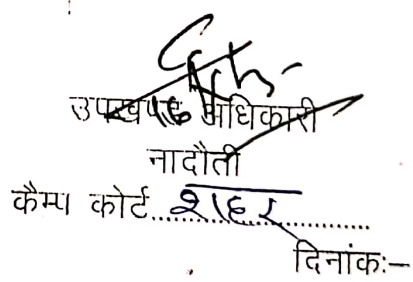 उपखण्ड अधिकारी
नादौती
कैम्प कोर्ट शहर
दिनांक:-